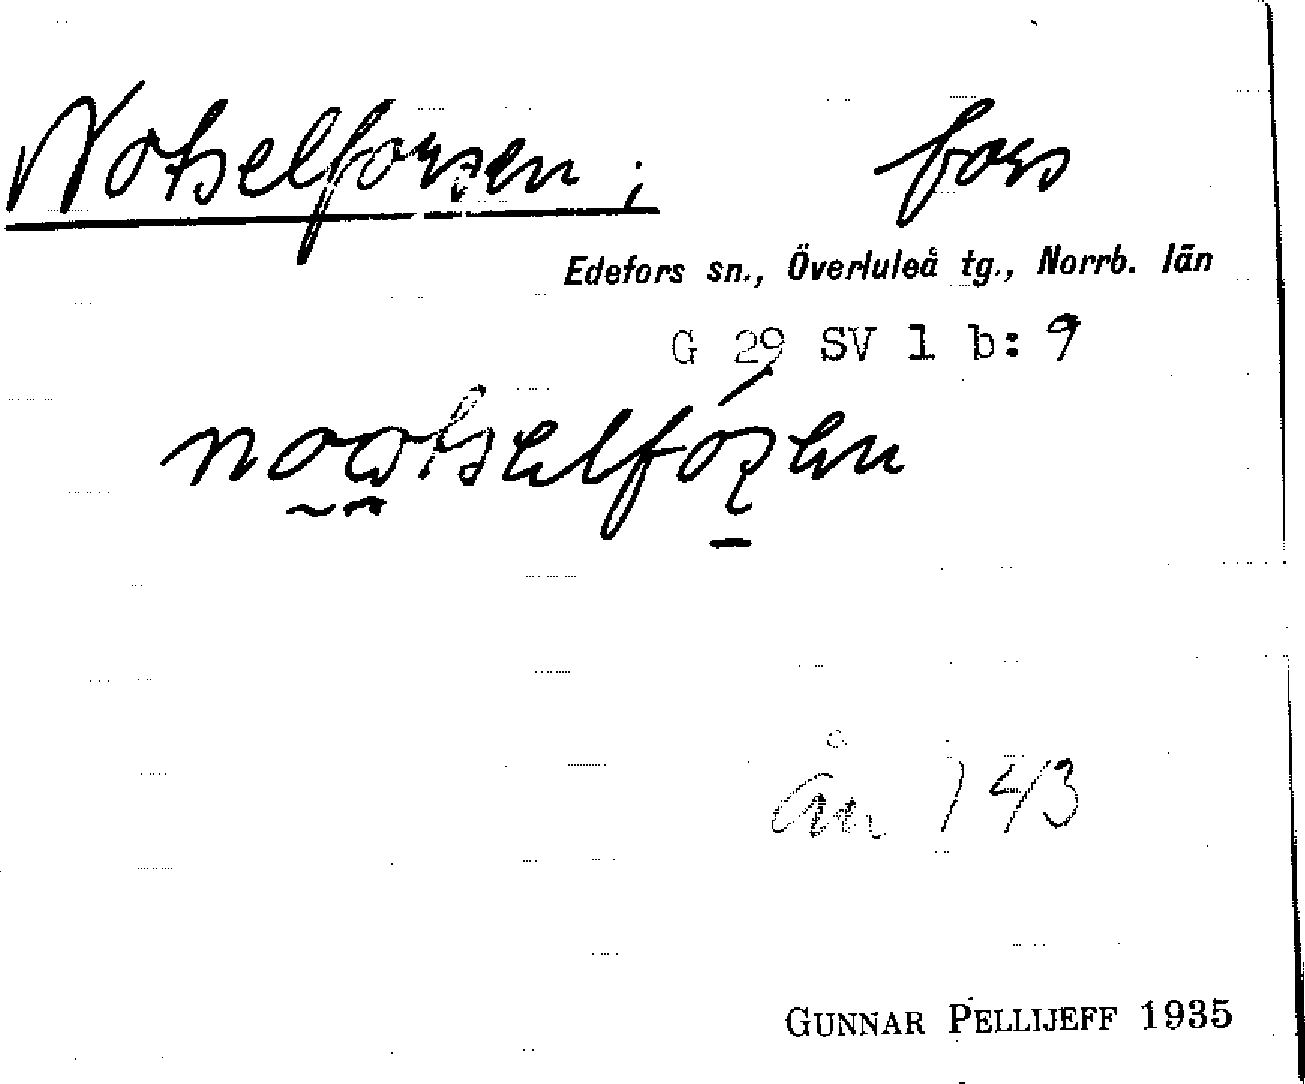 Notselforsen; fors
Edefors sn., Överluleå tg., Norrb. län
G 29 SV 1 b: 9
Ån 143
GUNNAR PELLIJEFF 1935